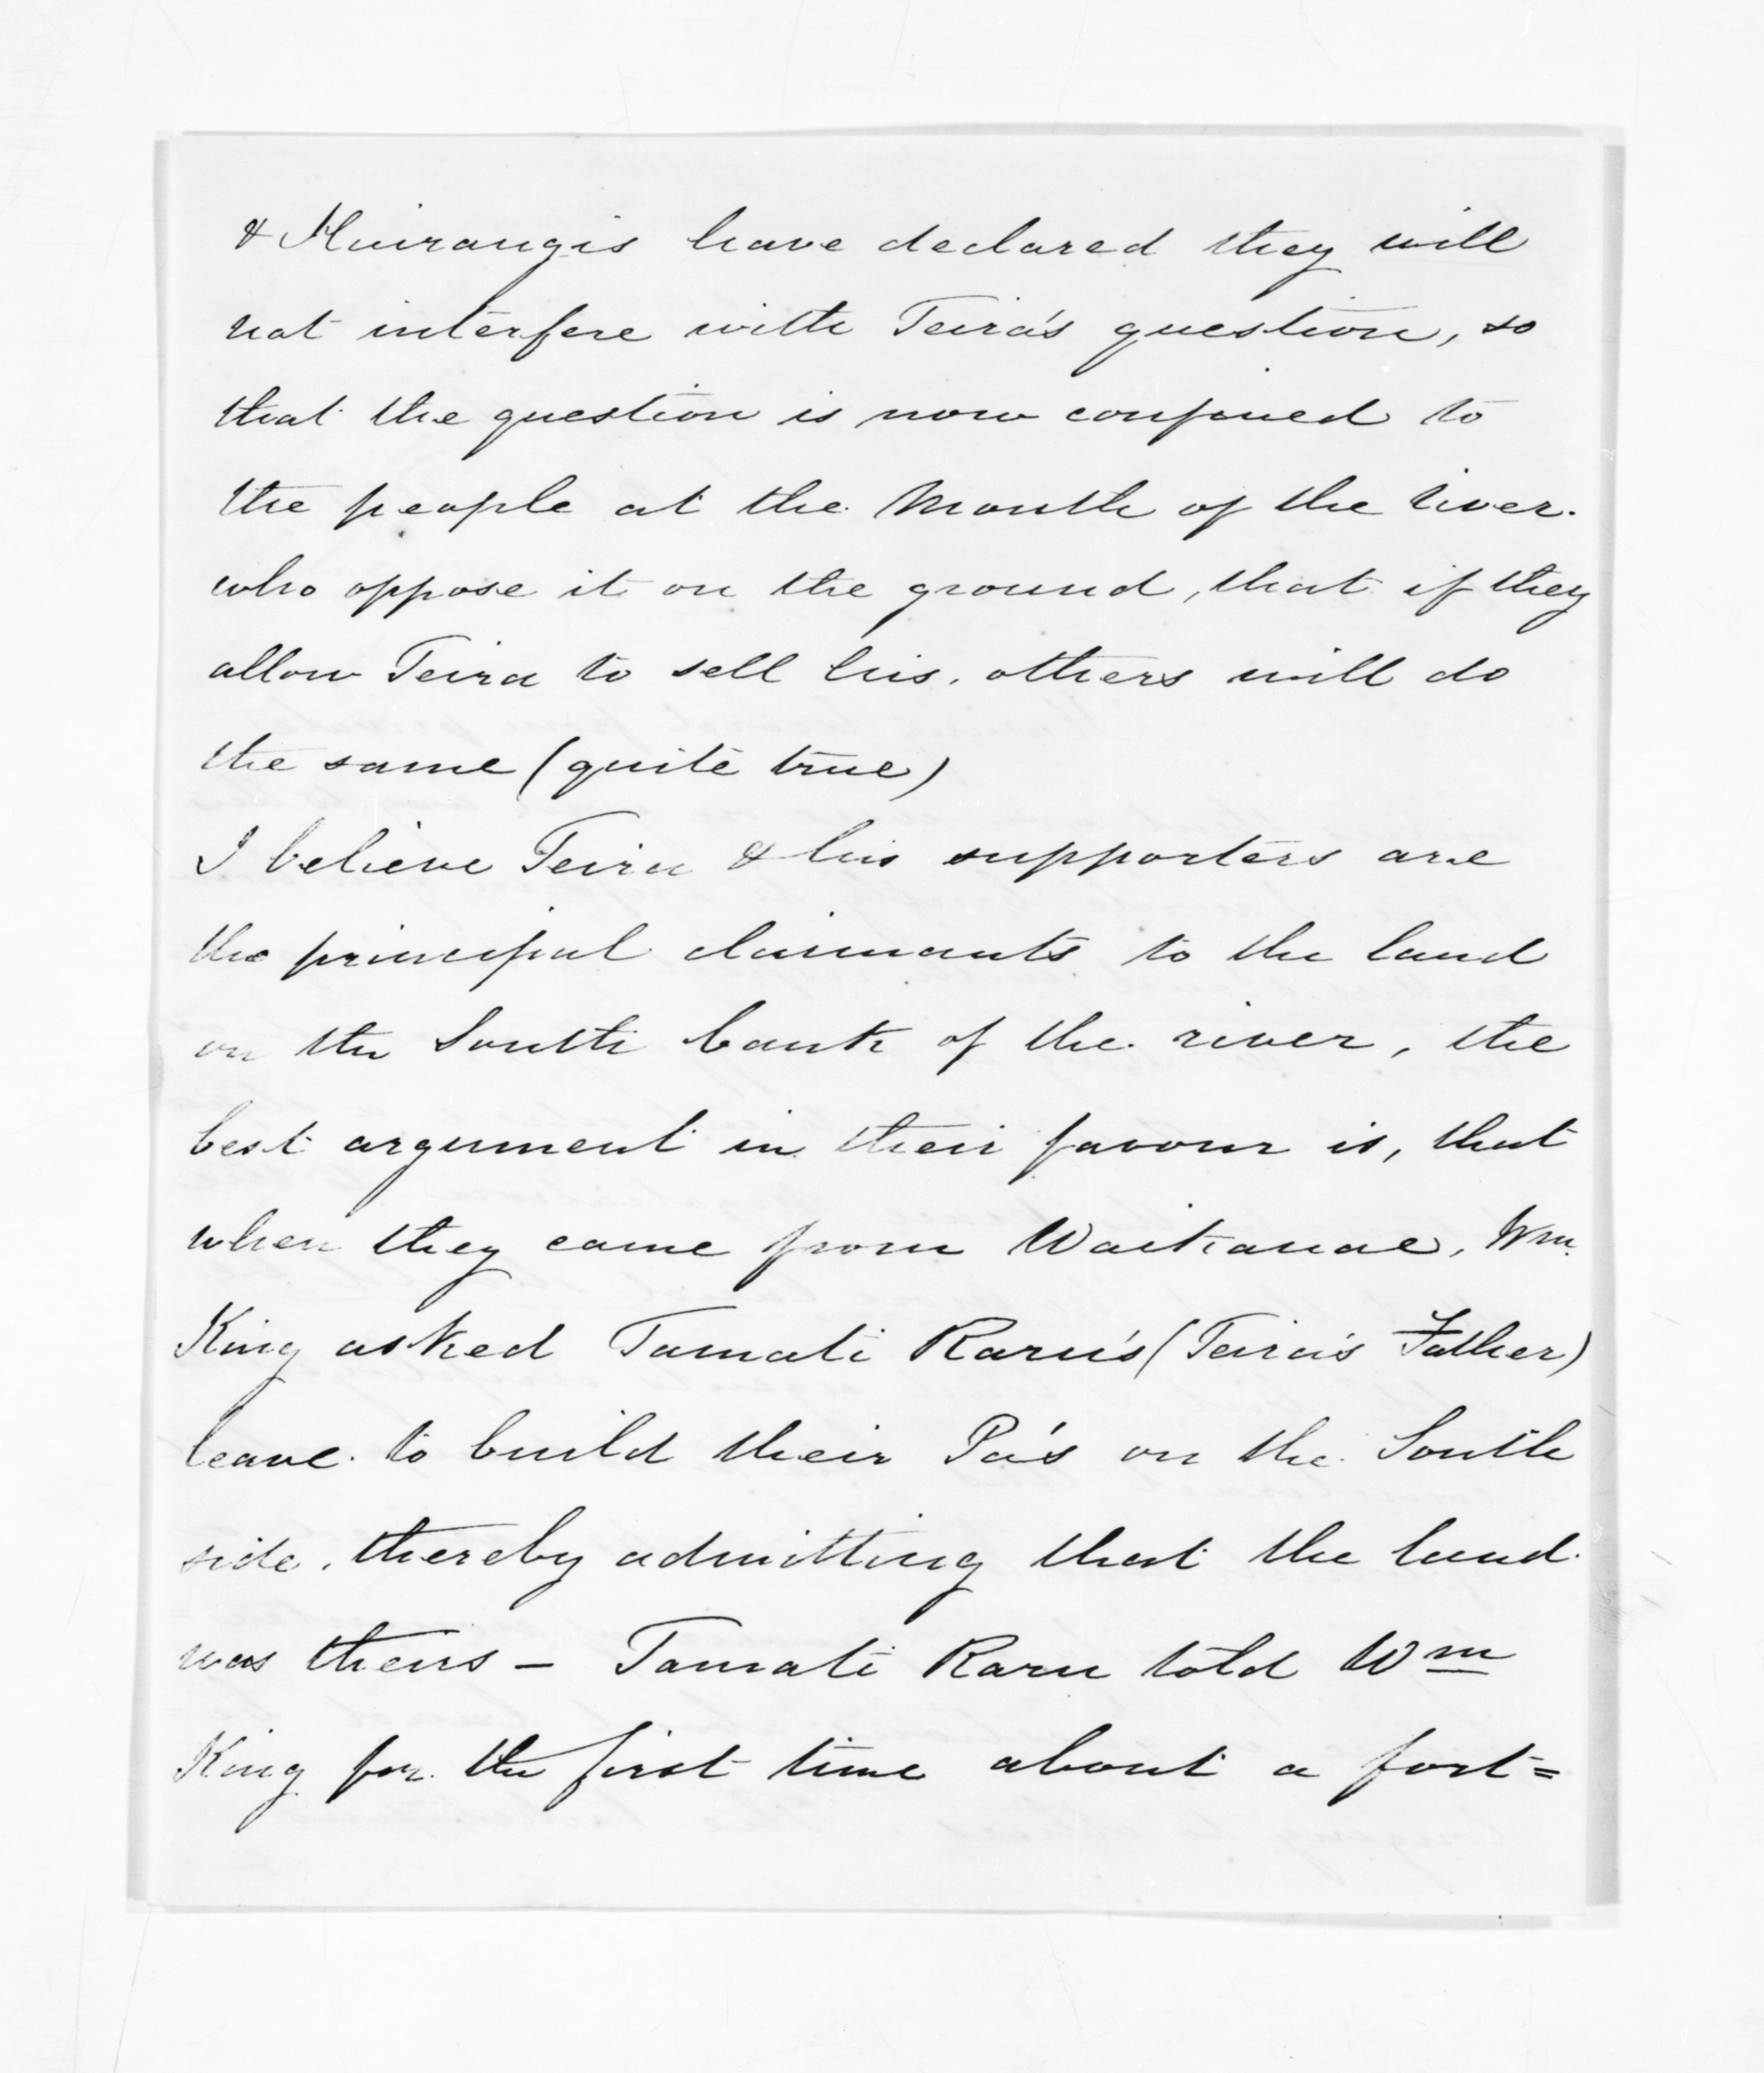 & Huirangis have declared they will
not interfere with Teira's question, so
that the question is now confined to
the people at the Mouth of the river.
who oppose it on the ground, that if they
allow Teira to sell his, others will do
the same (quite true)
I believe Teira & his supporters are
the principal claimants to the land
on the South bank of the river, the
best argument in their favour is, that
when they came from Waikanae, Wm.
King asked Tamati Raru's (Teira's Father)
leave to build their Pa's on the South
side, thereby admitting that the land
was theirs — Tamati Raru told Wm
King for the first time about a fort=